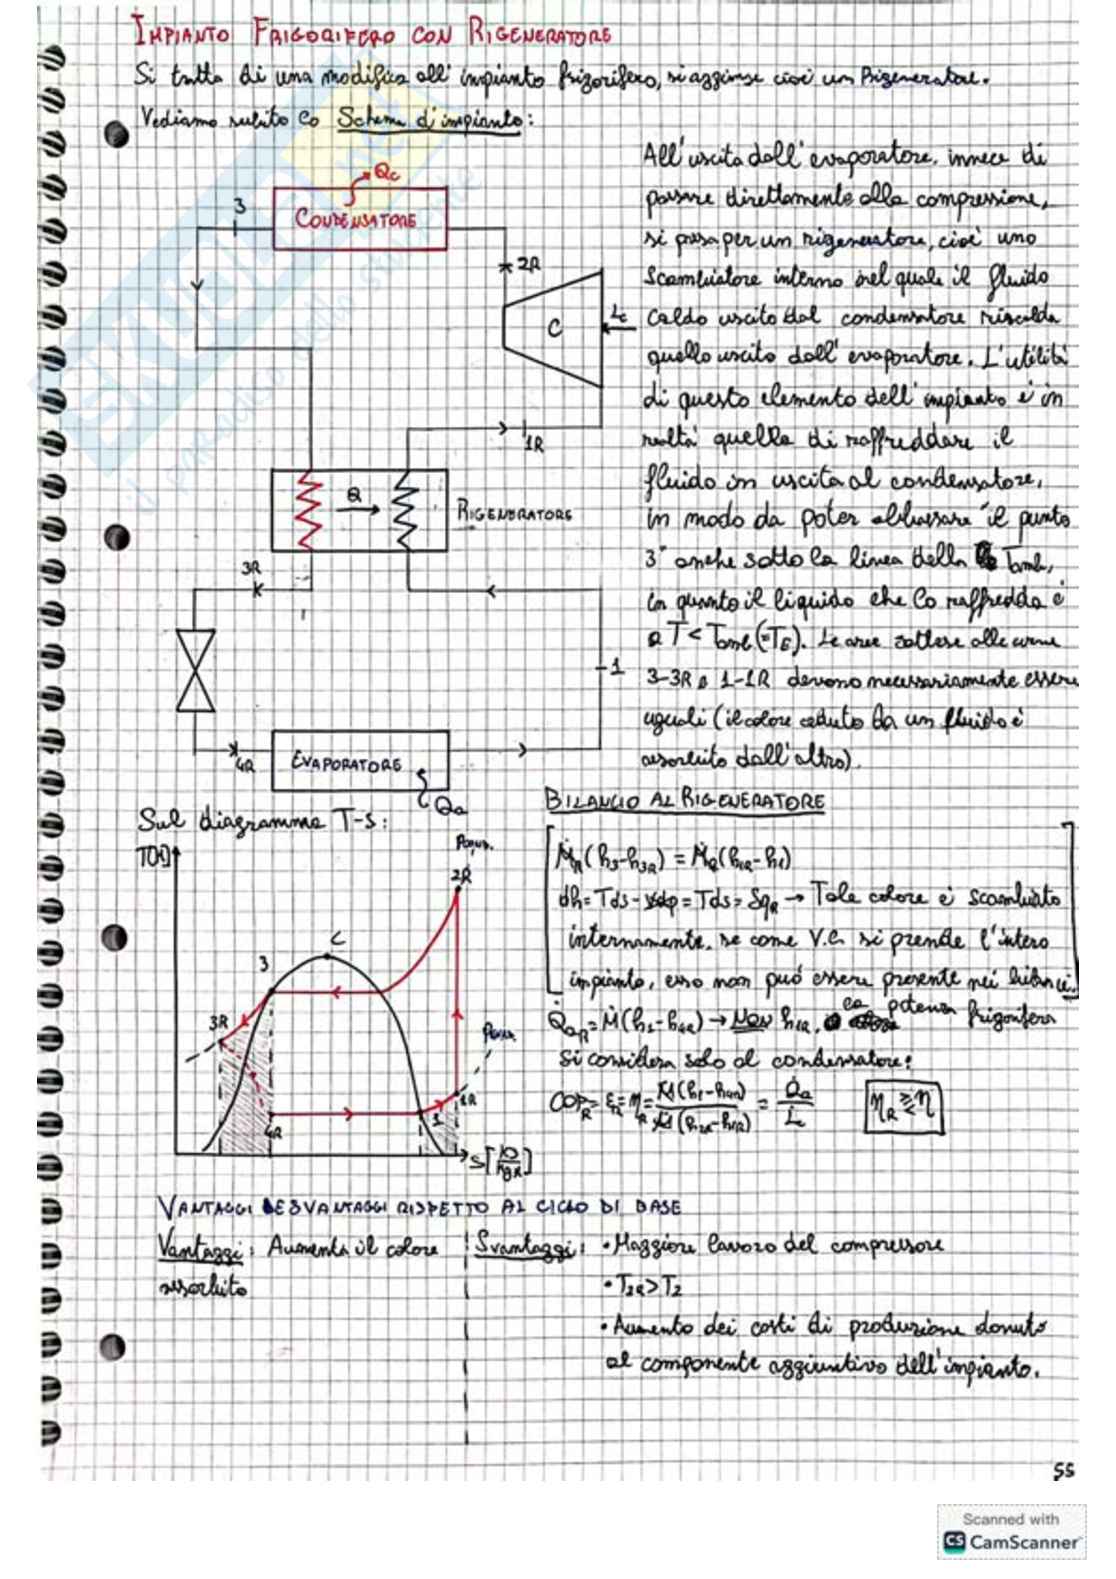 IMPIANTO FRIGORIFERO CON RIGENERATORE
Si tratta di una modifica all'impianto frigorifero, si aggiunge cioè un Rigeneratore.
Vediamo subito lo Schema d'impianto:
All'uscita dall'evaporatore, invece di
passare direttamente alla compressione,
si passa per un rigeneratore, cioè uno
scambiatore interno nel quale il fluido
caldo uscito dal condensatore riscalda
quello uscito dall'evaporatore. L'utilità
di questo elemento dell'impianto è in
realtà quella di raffreddare il
fluido in uscita al condensatore,
in modo da poter abbassare il punto
3" anche sotto la linea della Tamb,
in quanto il liquido che lo raffredda è
a T < Tamb (=TE). Le aree sottese alle curve
3-3R e 1-1R devono necessariamente essere
uguali (il calore ceduto da un fluido è
assorbito dall'altro).
Qc
3
CONDENSATORE
2R
C
Lc
1R
Q
RIGENERATORE
3R
1
4R
EVAPORATORE
Qa
Sul diagramma T-s:
T[K]
2R
C
3
3R
4R
1
1R
BILANCIO AL RIGENERATORE
ṀR(h3-h3R) = ṀR(h1R-h1)
dh = Tds - vdp = Tds = δqR → Tale calore è scambiato
internamente, se come V.C. si prende l'intero
impianto, esso non può essere presente nei bilanci.
Q̇aR = Ṁ(h1-h4R) → NON h1R, la potenza frigorifera
si considera solo al condensatore:
COPR = εR = ηR = Ṁ(h1-h4R) / Ṁ(h2R-h1R) = Q̇a / L̇c
ηR ≷ η
VANTAGGI E SVANTAGGI RISPETTO AL CICLO DI BASE
Vantaggi: Aumenta il calore
assorbito
Svantaggi: • Maggiore lavoro del compressore
• T2R > T2
• Aumento dei costi di produzione dovuto
al componente aggiuntivo dell'impianto.
55
Scanned with
CS CamScanner